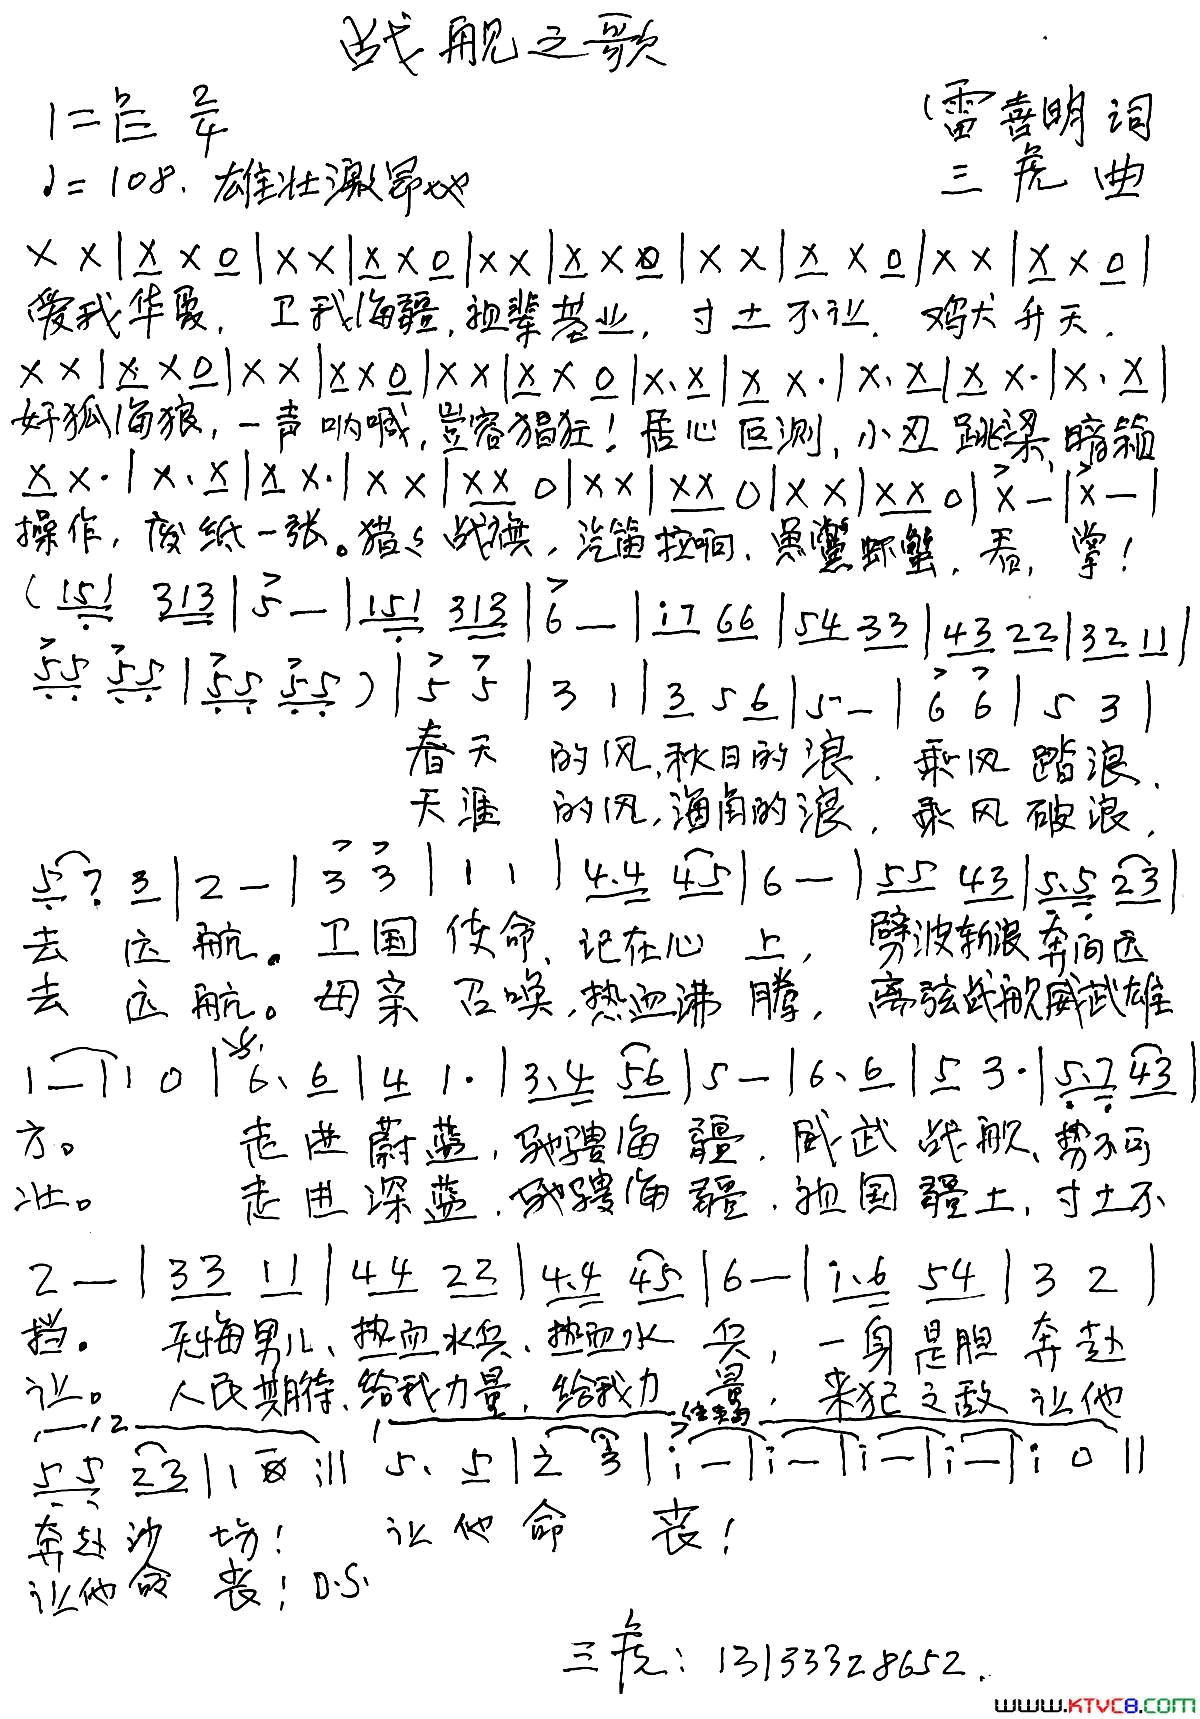 战舰之歌
1=♭E 2/4
(雷喜明 词
♩=108. 雄壮激昂地
三虎 曲
X X|X X 0|X X|X X 0|X X|X X 0|X X|X X 0|X X|X X 0|
爱我华夏, 卫我海疆,祖辈基业, 寸土不让. 鸡犬升天,
X X|X X 0|X X|X X 0|X X|X X 0|X. X|X X.|X. X|X X.|X. X|
奸狐海狼,一声呐喊,岂容猖狂!居心叵测,小丑跳梁,暗箱
X X.|X. X|X X.|X X|XX 0|XX|XX 0|XX|XX 0|X—|X—|
操作,废纸一张。猎々战旗,汽笛拉响,鱼鳖虾蟹,看,掌!
(151 313|5—|151 313|6—|i7 66|54 33|43 22|32 11|
55 55|55 55)|5 5|3 1|3 5 6|5—|6 6|5 3|
春天 的风,秋日的浪, 乘风踏浪,
天涯 的风,海角的浪, 乘风破浪,
5 7 3|2—|3 3|1 1|4.4 45|6—|55 43|5.5 23|
去 远航。卫国使命,记在心上, 劈波斩浪奔向远
去 远航。母亲召唤,热血沸腾, 离弦战舰威武雄
1—|1 0|6. 6|4 1.|3.4 56|5—|6. 6|5 3.|5.7 43|
方。 走进蔚蓝,驰骋海疆,威武战舰,势不可
壮。 走进深蓝,驰骋海疆,祖国疆土,寸土不
2—|33 11|44 22|4.4 45|6—|i.6 54|3 2|
挡。 无悔男儿、热血水兵、热血水兵, 一身是胆奔赴
让。 人民期待,给我力量,给我力量, 来犯之敌让他
12
55 23|1 0:|| 5. 5|2 3|i—|i—|i—|i—|i 0||
奔赴沙场! 让他命 丧!
让他命丧! D.S.
三虎:13133328652.
www.KTVC8.com